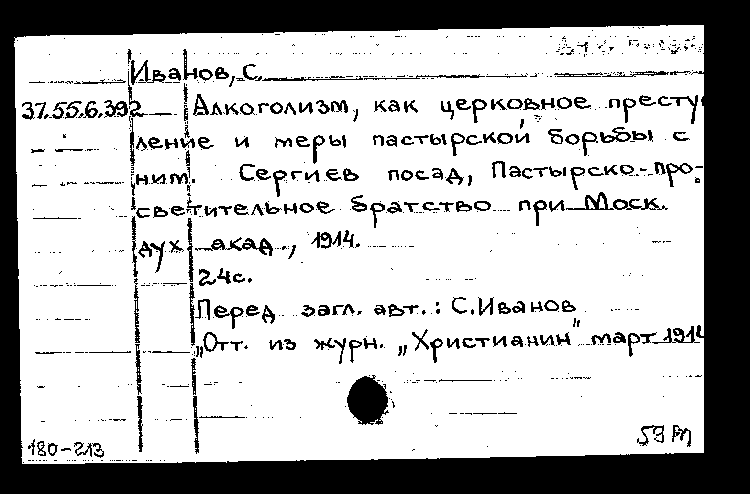 Иванов, С.
37.55.6.392 Алкоголизм, как церковное престу
ление и меры пастырской борьбы с
ним. Сергиев посад, Пастырско-про-
светительное братство при Моск.
дух. акад., 1914.
24с.
Перед загл. авт.: С.Иванов
„Отт. из журн. „Христианин" март 1914
180-213